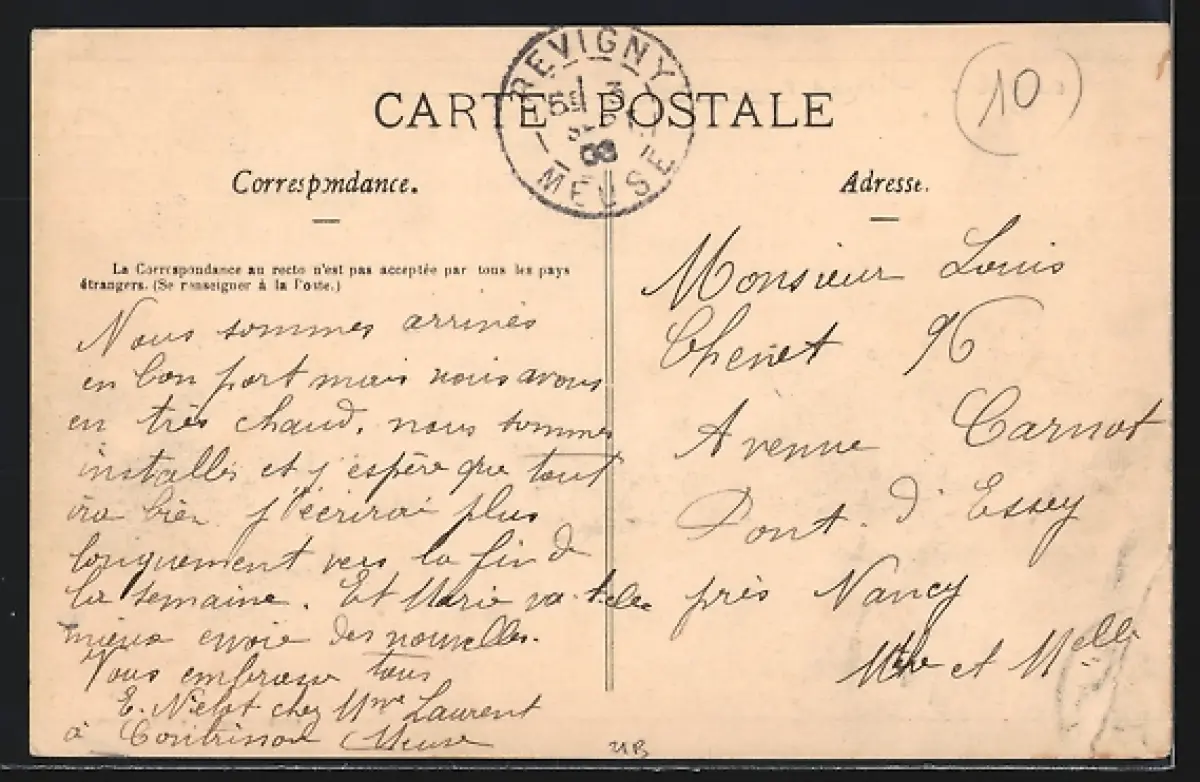 CARTE POSTALE
REVIGNY
MEUSE
10
Correspondance.
La Correspondance au recto n'est pas acceptée par tous les pays
étrangers. (Se renseigner à la Poste.)
Nous sommes arrivés
en bon port mais nous avons
eu très chaud, nous sommes
installés et j'espère que tout
ira bien j'écrirai plus
longuement vers la fin de
la semaine. Et Marie va t-elle
mieux envoie des nouvelles.
Vous embrasse tous
E. Nielot chez Mme Laurent
à Contrisson Meuse
Adresse.
Monsieur Louis
Chenet 96
Avenue Carnot
Pont d'Essey
près Nancy
Mthe et Melle